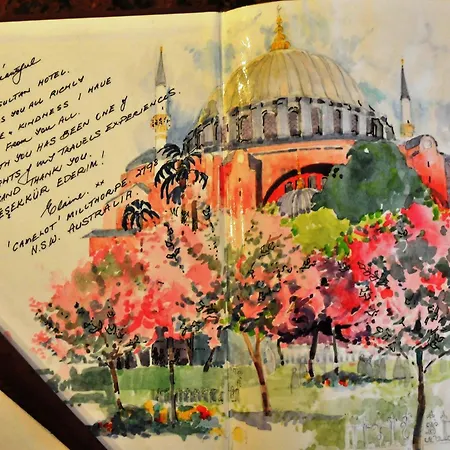 Beautiful
SULTAN HOTEL.
YOU ALL RICHLY
& KINDNESS I HAVE
FROM YOU ALL.
YOU HAS BEEN ONE OF
MY TRAVELS EXPERIENCES.
AND THANK YOU.
TEŞEKKÜR EDERIM!
Elaine. xx
'CAMELOT', MILTHORPE, 2798
N.S.W. AUSTRALIA.